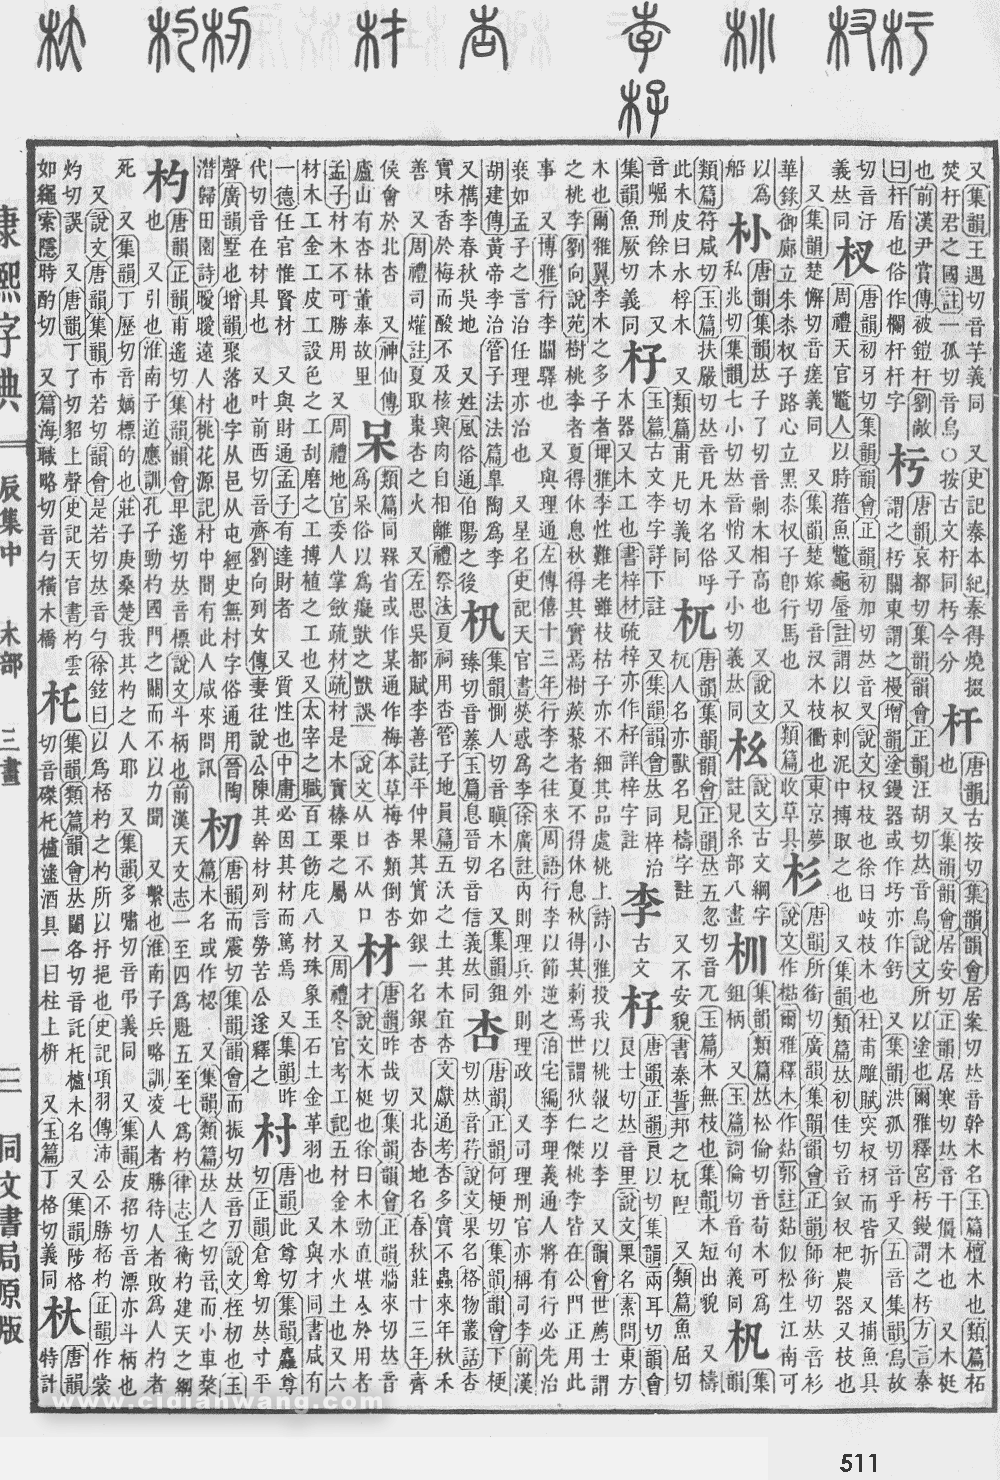 康熙字典
辰集中　木部　三畫
二　同文書局原版
又集韻王遇切音芋義同　又史記秦本紀秦得燒掇
焚杅君之國註一孤切音烏○按古文杅同杇今分
杆
唐韻古按切集韻韻會居案切𠀤音幹木名玉篇檀木也類篇柘
也　又集韻韻會居安切正韻居寒切𠀤音干僵木也　又木梃
也前漢尹賞傳被鎧杆劉敞
曰杆盾也俗作欄杆杆字
杇
唐韻哀都切集韻韻會正韻汪胡切𠀤音烏說文所以塗也爾雅釋宮杇鏝謂之杇方言秦
謂之杇關東謂之槾增韻塗鏝器或作圬亦作釫　又集韻洪孤切音乎又五音集韻烏故
切音汙
義𠀤同
杈
唐韻初牙切集韻韻會正韻初加切𠀤音叉說文杈枝也徐曰岐枝木也杜甫雕賦突杈枒而皆折　又捕魚具
周禮天官鼈人以時簎魚鼈龜蜃註謂以杈刺泥中搏取之也　又集韻類篇𠀤初佳切音釵杈杷農器又枝也
又集韻楚懈切音瘥義同　又集韻楚嫁切音汊木枝衢也東京夢
華錄御廊立朱黍杈子路心立黑黍杈子卽行馬也　又類篇收草具
杉
唐韻所銜切廣韻集韻韻會正韻師銜切𠀤音衫
說文作煔爾雅釋木作郭註似松生江南可
以為
船
朴
唐韻集韻𠀤子了切音剿木相高也　又說文
私兆切集韻七小切𠀤音悄又子小切義𠀤同
說文古文綱字
註見糸部八畫
集韻類篇𠀤松倫切音荀木可為
鉏柄　又玉篇詞倫切音旬義同
杋
集
韻
類篇符咸切玉篇扶嚴切𠀤音凡木名俗呼
此木皮曰水桴木　又類篇甫凡切義同
杌
唐韻集韻韻會正韻𠀤五忽切音兀玉篇木無枝也集韻木短出貌　又檮
杌人名亦獸名見檮字註　又不安貌書秦誓邦之杌隉　又類篇魚屈切
音崛刖餘木　又
集韻魚厥切義同
杍
玉篇古文李字詳下註　又集韻韻會𠀤同梓治
木器又木工也書梓材疏梓亦作杍詳梓字註
李
古文
杍
唐韻正韻良以切集韻兩耳切韻會
良士切𠀤音里說文果名素問東方
木也爾雅翼李木之多子者埤雅李性難老雖枝枯子亦不細其品處桃上詩小雅投我以桃報之以李　又韻會世薦士謂
之桃李劉向說苑樹桃李者夏得休息秋得其實焉樹蒺藜者夏不得休息秋得其刺焉世謂狄仁傑桃李皆在公門正用此
事　又博雅行李關驛也　又與理通左傳僖十三年行李之往來周語行李以節逆之泊宅編李理義通人將有行必先治
裝如孟子之言治任理亦治也　又星名史記天官書熒惑為李徐廣註內則理兵外則理政　又司理刑官亦稱司李前漢
胡建傳黃帝李治管子法法篇臯陶為李
又檇李春秋吳地　又姓風俗通伯陽之後
集韻惻人切音瞋木名　又集韻鉏
臻切音蓁玉篇息晉切音信義𠀤同
杏
唐韻正韻何梗切集韻韻會下梗
切𠀤音荇說文果名格物叢話杏
實味香於梅而酸不及核與肉自相離禮祭法夏祠用杏管子地員篇五沃之土其木宜杏文獻通考杏多實不蟲來年秋禾
善　又周禮司爟註夏取棗杏之火　又左思吳都賦李善註平仲果其實如銀一名銀杏　又北杏地名春秋莊十三年齊
侯會於北杏　又神仙傳
廬山有杏林董奉故里
呆
類篇同槑省或作某通作梅本草梅杏類倒杏
為呆俗以為癡獃之獃誤　說文从口不从口
材
唐韻昨哉切集韻韻會正韻牆來切𠀤音
才說文木梃也徐曰木勁直堪入於用者
孟子材木不可勝用　又周禮地官委人掌斂疏材疏材是木實榛栗之屬　又周禮冬官考工記五材金木水火土也又六
材木工金工皮工設色之工刮磨之工摶植之工也又太宰之職百工飭庀八材珠象玉石土金革羽也　又與才同書咸有
一德任官惟賢材　又與財通孟子有達財者　又質性也中庸必因其材而篤焉　又集韻昨
代切音在材具也　又叶前西切音齊劉向列女傳妻往說公陳其幹材列言勞苦公遂釋之
村
唐韻此尊切集韻麤尊
切正韻倉尊切𠀤寸平
聲廣韻墅也增韻聚落也字从邑从屯經史無村字俗通用晉陶
潛歸田園詩曖曖遠人村桃花源記村中聞有此人咸來問訊
杒
唐韻而震切集韻韻會而振切𠀤音刃說文桎杒也玉
篇木名或作梕　又集韻類篇𠀤人之切音而小車棃
杓
唐韻正韻甫遙切集韻韻會卑遙切𠀤音標說文斗柄也前漢天文志一至四為魁五至七為杓律志玉衡杓建天之綱
也　又引也淮南子道應訓孔子勁杓國門之關而不以力聞　又繫也淮南子兵略訓凌人者勝待人者敗為人杓者
死　又集韻丁歷切音嫡標的也莊子庚桑楚我其杓之人耶　又集韻多嘯切音弔義同　又集韻皮招切音漂亦斗柄也
又說文唐韻集韻市若切韻會是若切𠀤音勺徐鉉曰以為桮杓之杓所以抒挹也史記項羽傳沛公不勝桮杓正韻作裳
灼切誤　又唐韻丁了切音貂上聲史記天官書杓雲
如繩索隱時酌切　又篇海職略切音勺橫木橋
杔
集韻類篇韻會𠀤闥各切音託杔櫨木名　又集韻陟格
切音磔杔櫨酒具一曰柱上枅　又玉篇丁格切義同
杕
唐韻
特計
www.cidianwang.com
511